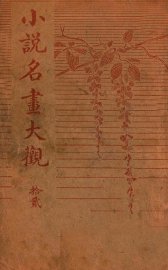 小說名畫大觀
拾貳